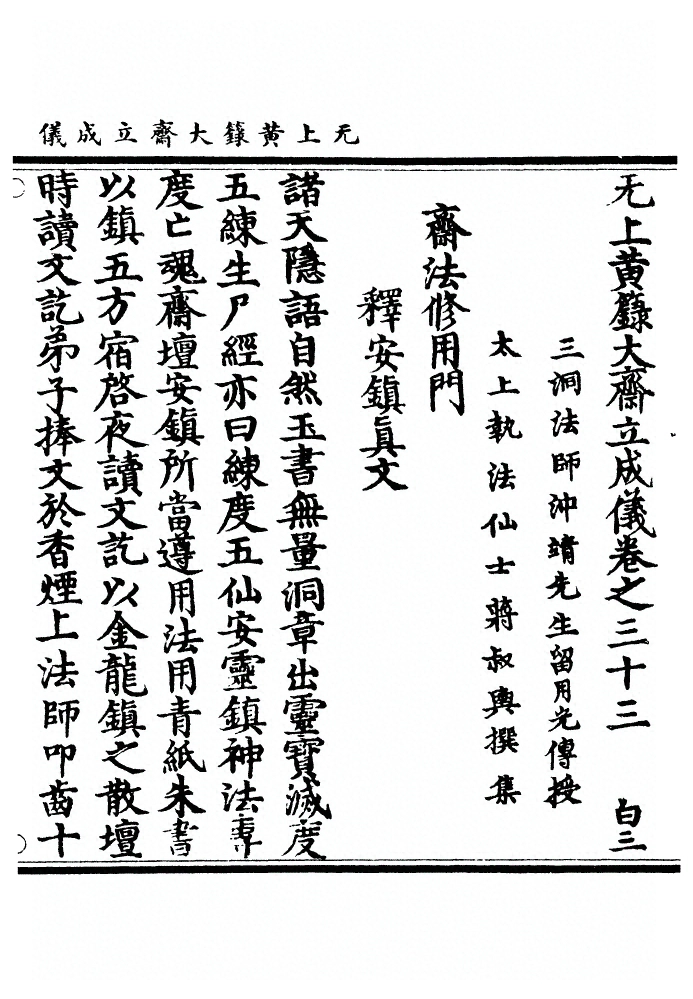 无上黄籙大齋立成儀
无上黄籙大齋立成儀卷之三十三 白三
三洞法師沖靖先生留用光傳授
太上執法仙士蔣叔輿撰集
齋法修用門
釋安鎮眞文
諸天隱語自然玉書無量洞章出靈寶滅度
五練生尸經亦曰練度五仙安靈鎮神法專
度亡魂齋壇安鎮所當遵用法用青紙朱書
以鎮五方宿啓夜讀文訖以金龍鎮之散壇
時讀文訖弟子捧文於香煙上法師叩齒十